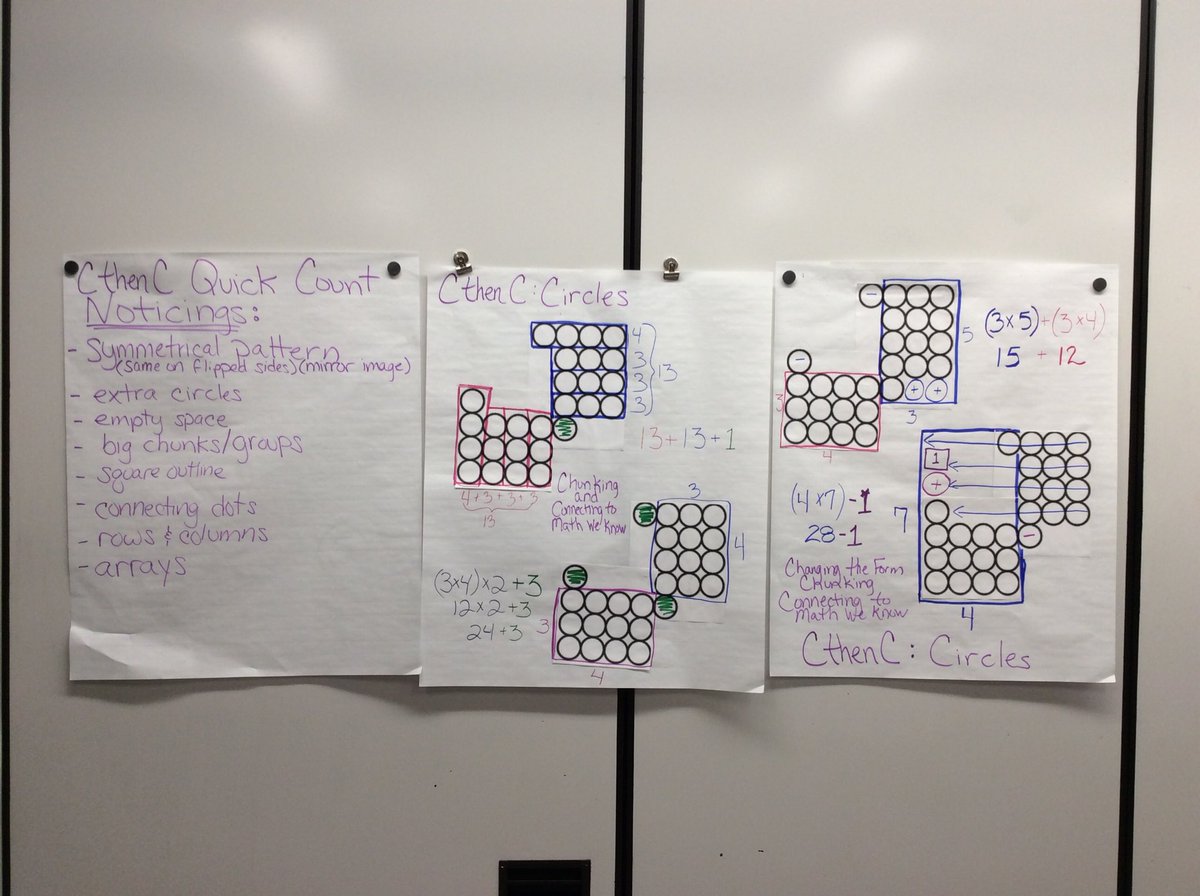 CthenC Quick Count
Noticings:
- Symmetrical pattern
(same on flipped sides)(mirror image)
- extra circles
- empty space
- big chunks/groups
- square outline
- connecting dots
- rows & columns
- arrays
CthenC: Circles
4
3
3
3
13
13+13+1
4+3+3+3
13
Chunking
and
Connecting to
Math we know
3
4
(3x4)x2+3
12x2+3
24+3
3
4
-
-
+ +
5
3
3
4
(3x5)+(3x4)
15 + 12
1
+
-
7
4
(4x7)-1
28-1
Changing the Form
Chunking
Connecting to
Math we know
CthenC: Circles